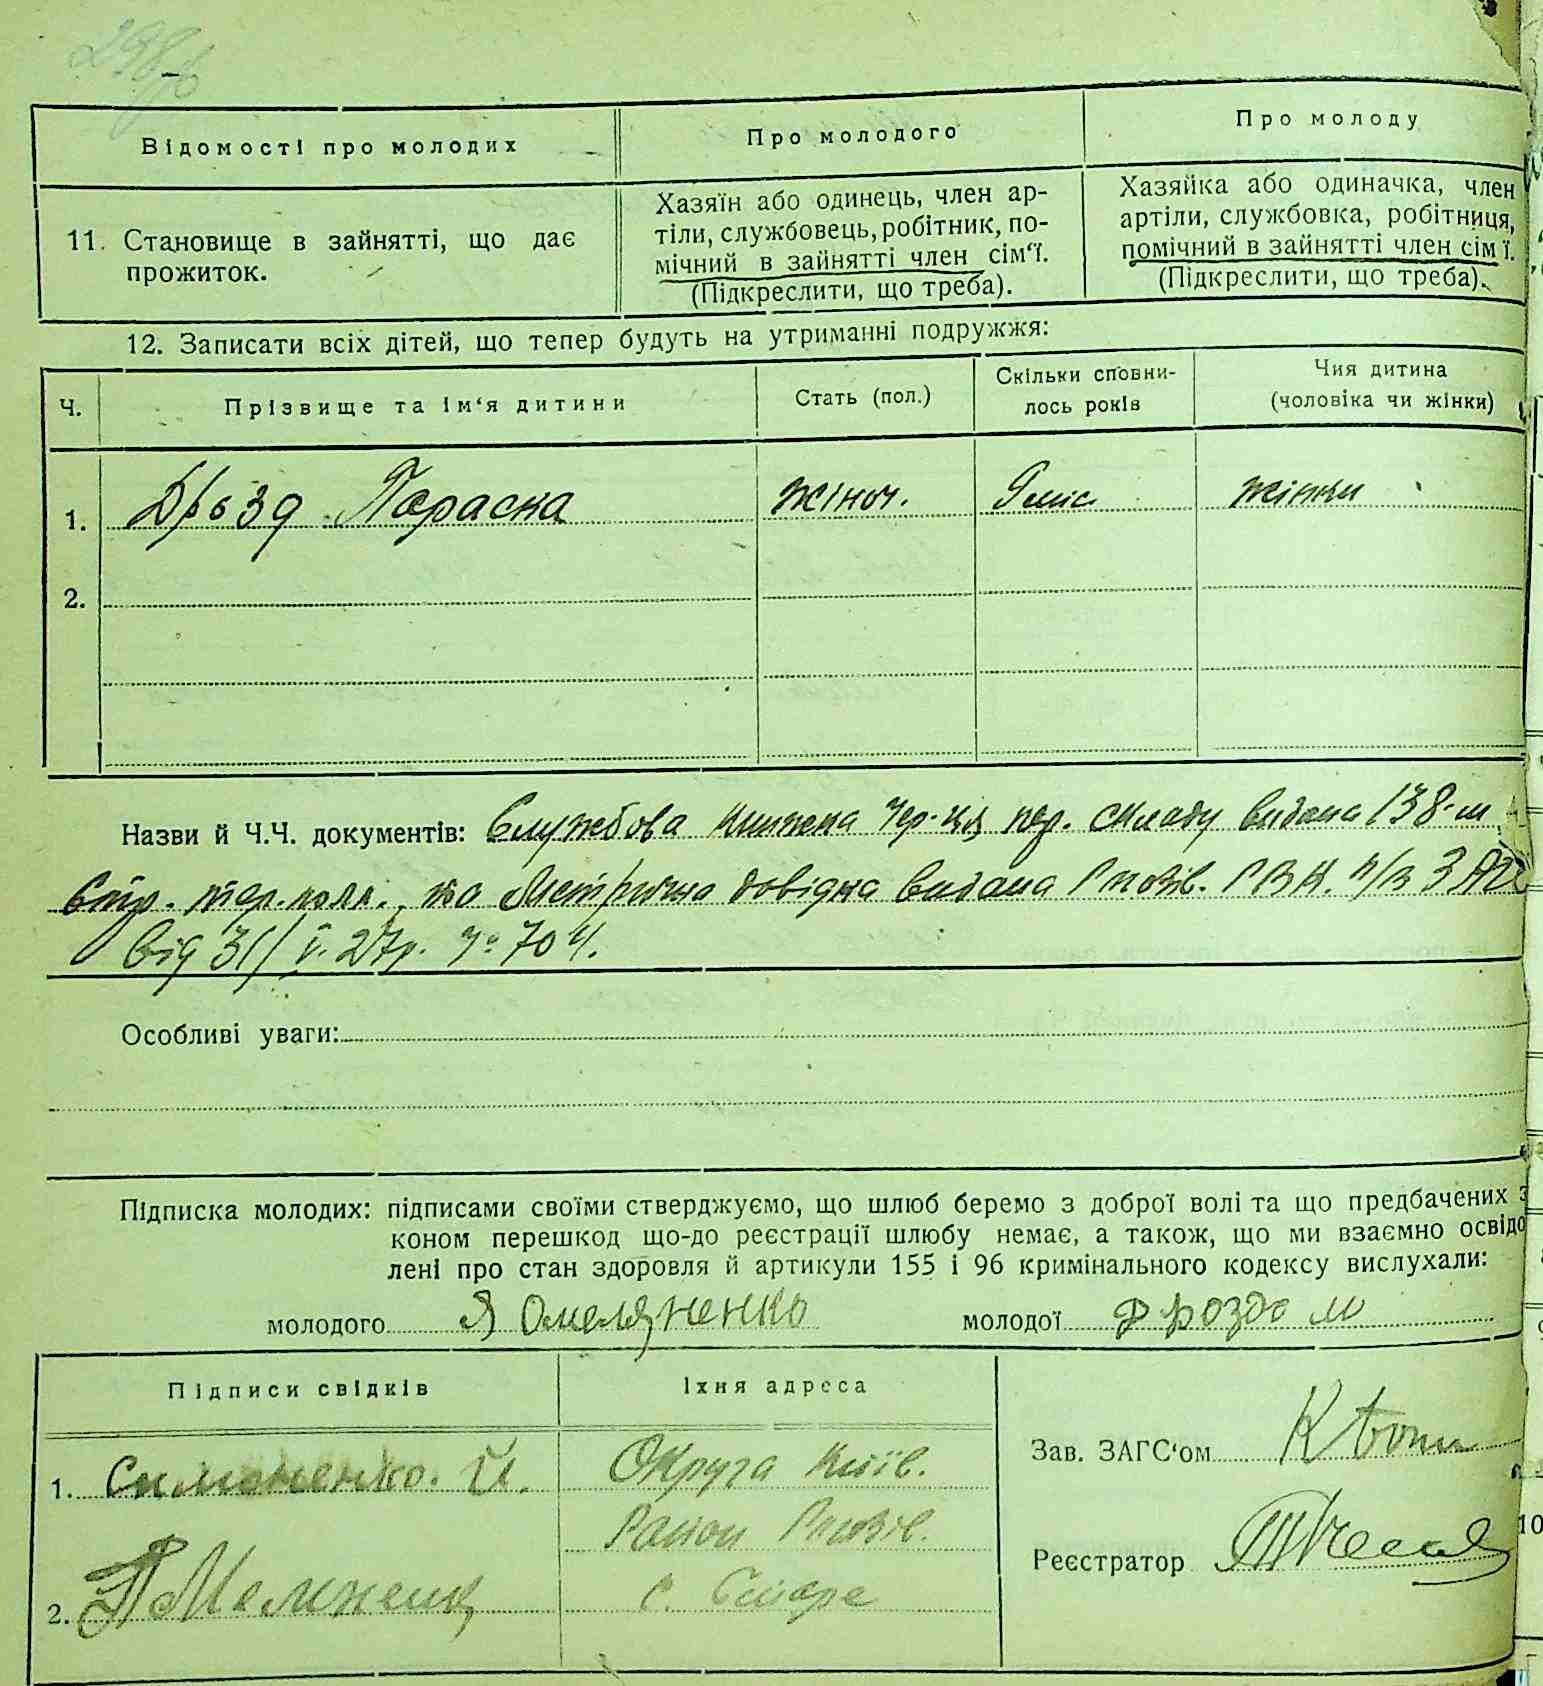 298
Відомості про молодих
Про молодого
Про молоду
11. Становище в зайнятті, що дає
прожиток.
Хазяїн або одинець, член ар-
тіли, службовець, робітник, по-
мічний в зайнятті член сім‘ї.
(Підкреслити, що треба).
Хазяйка або одиначка, член
артіли, службовка, робітниця,
помічний в зайнятті член сім ї.
(Підкреслити, що треба).
12. Записати всіх дітей, що тепер будуть на утриманні подружжя:
Ч.
Прізвище та ім‘я дитини
Стать (пол.)
Скільки сповни-
лось років
Чия дитина
(чоловіка чи жінки)
1. Дрозд Параска жіноч. 9 міс жінки
2.
Назви й Ч.Ч. документів: Службова книжка чер-ця пер. складу видана 138-м
Стр. тер. полк. та довідка видана Гнозів. Р В К.
від 31/V. 27р. № 704.
Особливі уваги:
Підписка молодих: підписами своїми стверджуємо, що шлюб беремо з доброї волі та що предбачених з
коном перешкод що-до реєстрації шлюбу немає, а також, що ми взаємно освідо
лені про стан здоровля й артикули 155 і 96 кримінального кодексу вислухали:
молодого Я Омеляненко молодої Дрозд М
Підписи свідків
Їхня адреса
1. Симоненко. Й.
Округа Київ.
Район Гнозів.
2.
с. Старе
Зав. ЗАГС‘ом
Реєстратор
10